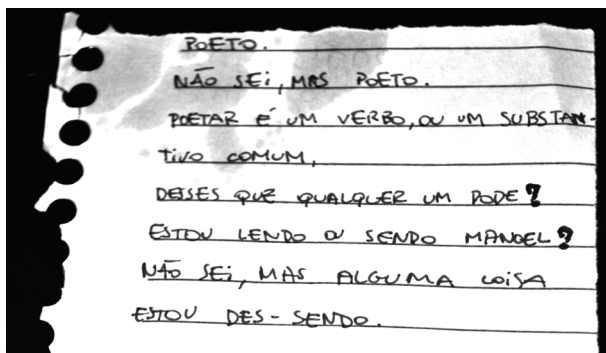 POETO.
NÃO SEI, MAS POETO.
POETAR É UM VERBO, OU UM SUBSTAN-
TIVO COMUM,
DESSES QUE QUALQUER UM PODE?
ESTOU LENDO OU SENDO MANOEL?
NÃO SEI, MAS ALGUMA COISA
ESTOU DES-SENDO.